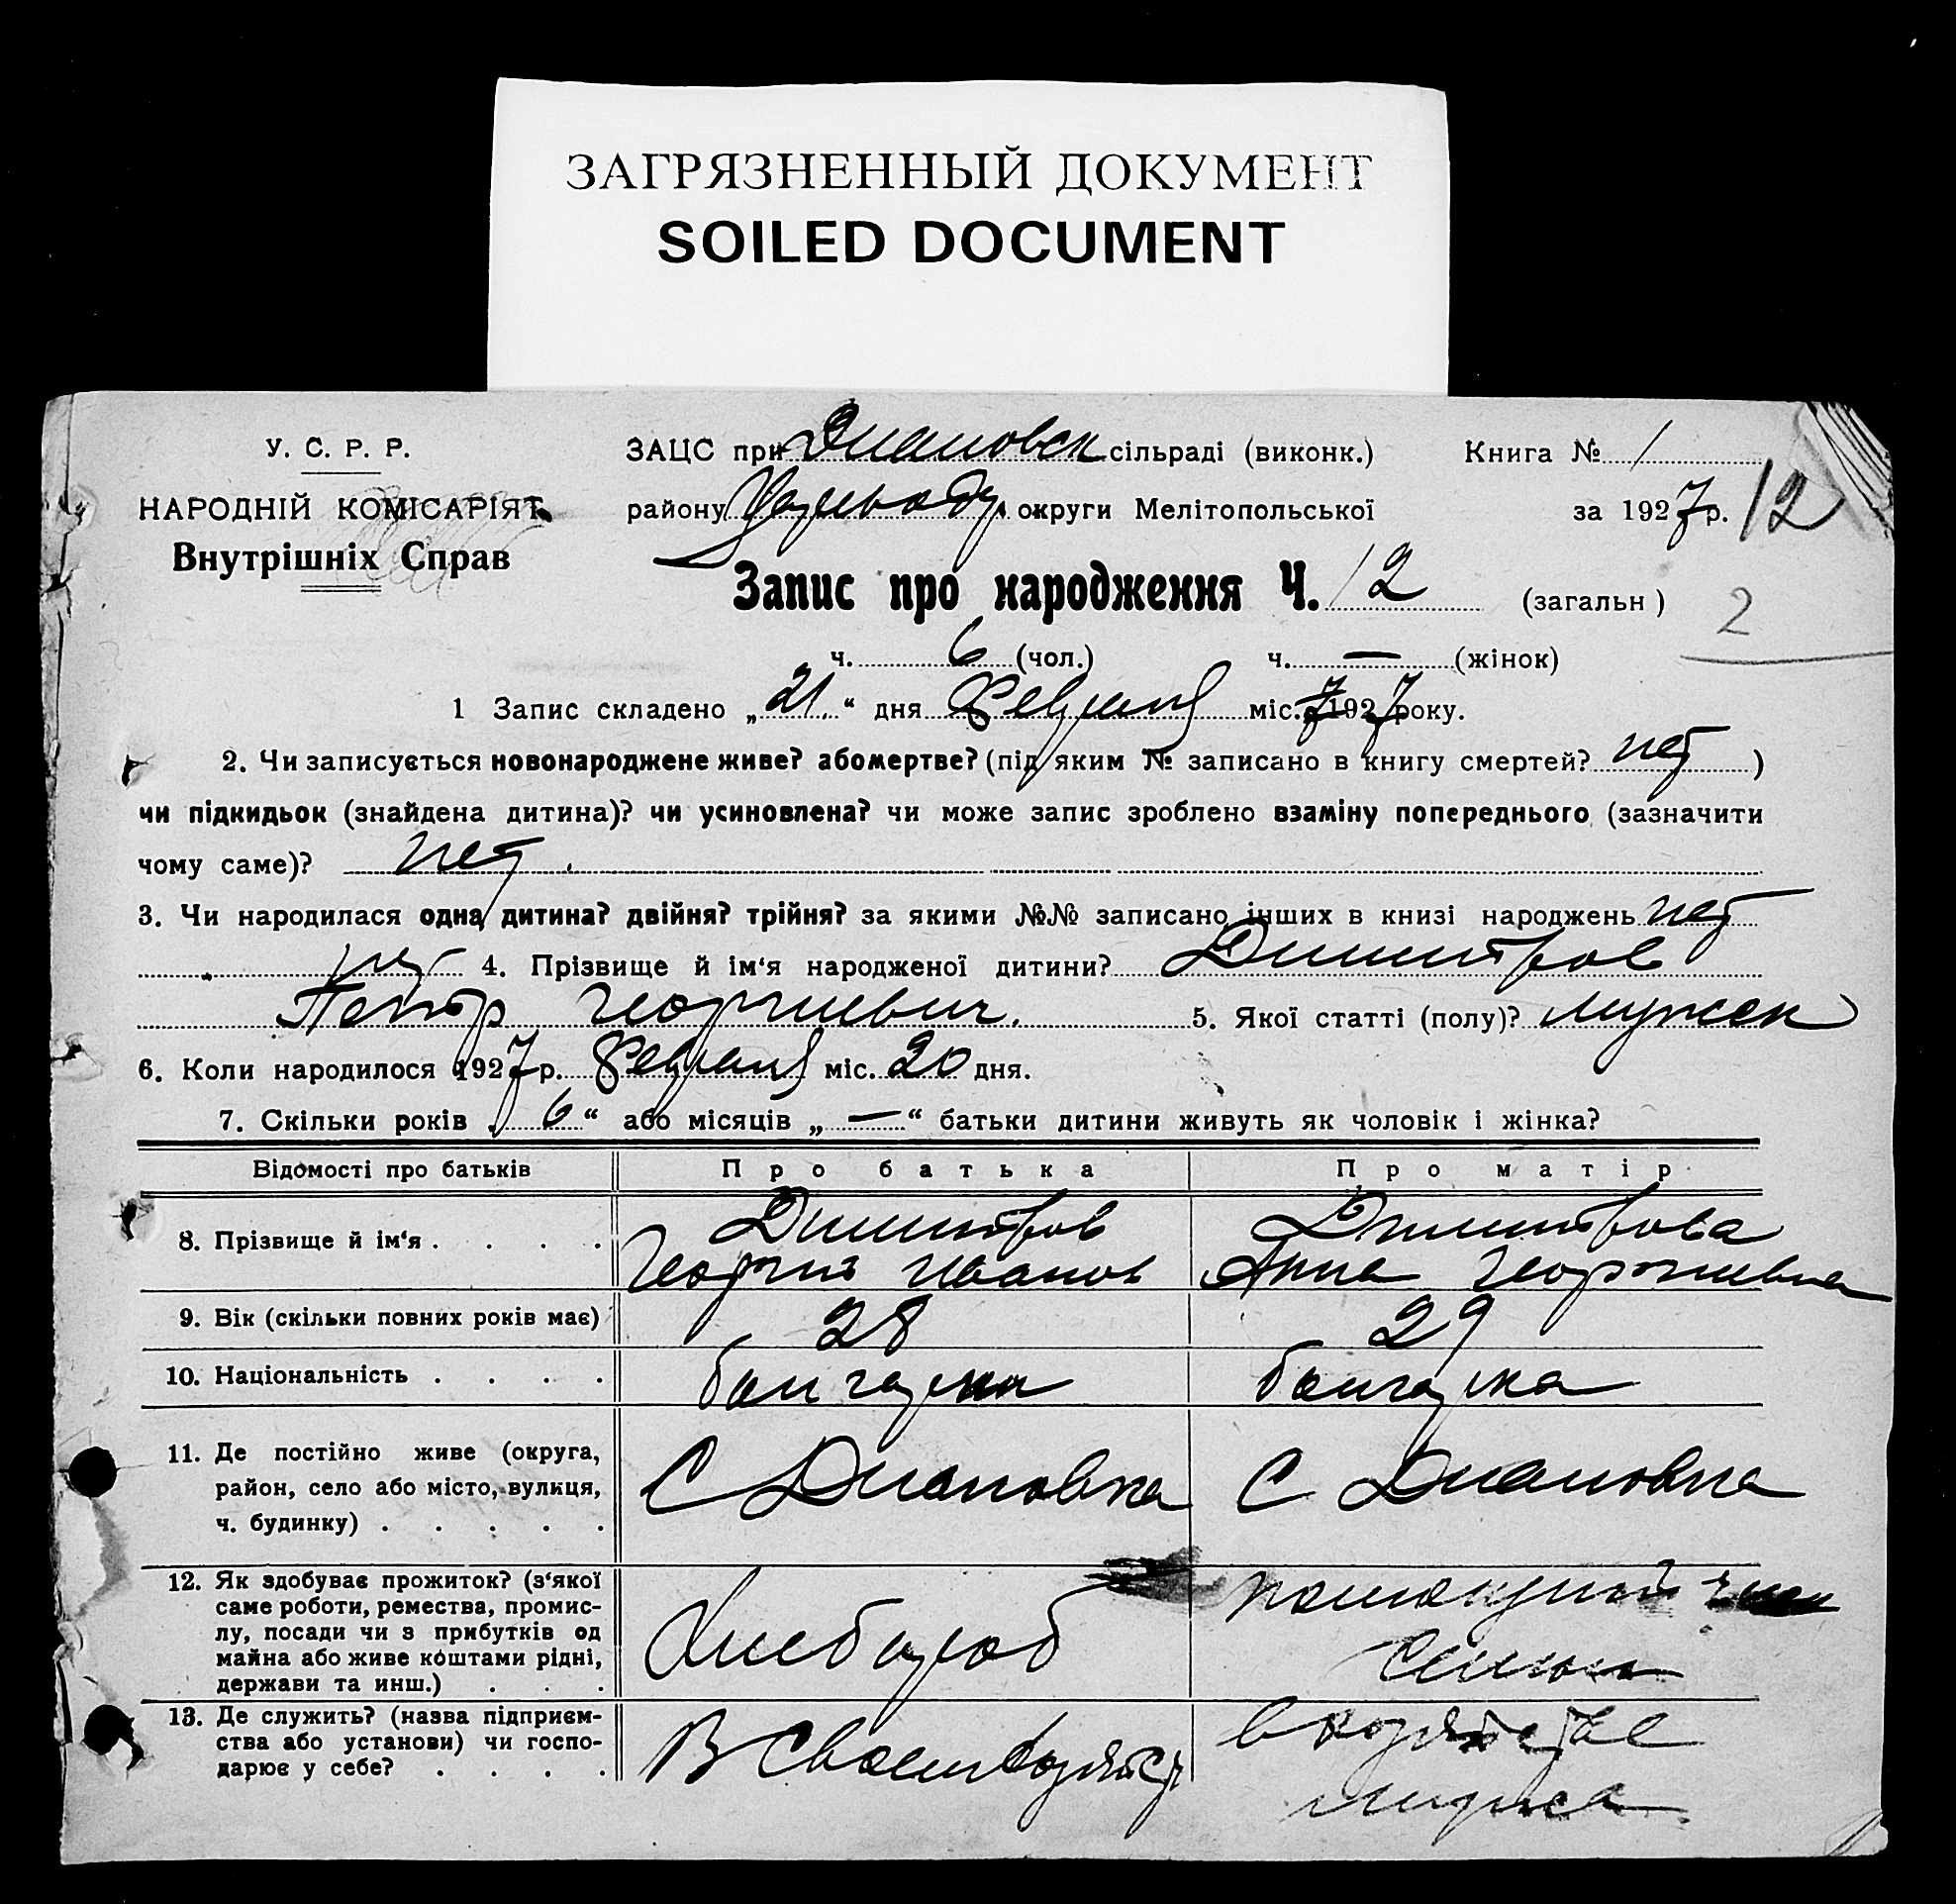 ЗАГРЯЗНЕННЫЙ ДОКУМЕНТ
SOILED DOCUMENT
У. С. Р. Р.
НАРОДНІЙ КОМІСАРІЯТ
Внутрішніх Справ
ЗАЦС при Диановск сільраді (виконк.)
району округи Мелітопольської
Книга № 1
за 1927 р. 12
Запис про народження Ч. 12 (загальн)
2
ч. 6 (чол.) ч. — (жінок)
1 Запис складено „21“ дня Февраля міс. 1927 року.
2. Чи записується новонароджене живе? або мертве? (під яким № записано в книгу смертей? нет)
чи підкидьок (знайдена дитина)? чи усиновлена? чи може запис зроблено взаміну попереднього (зазначити
чому саме)? нет
3. Чи народилася одна дитина? двійня? трійня? за якими №№ записано інших в книзі народжень нет
нет 4. Прізвище й ім‘я народженої дитини? Димитров
Петр Георгиевич. 5. Якої статті (полу)? мужск
6. Коли народилося 1927 р. Февраля міс. 20 дня.
7. Скільки років „6“ або місяців „—“ батьки дитини живуть як чоловік і жінка?
Відомості про батьків Про батька Про матір
8. Прізвище й ім‘я . . . . Димитров Димитрова
Георгий Иванов Анна Георгиевна
9. Вік (скільки повних років має) 28 29
10. Національність . . . . болгарин болгарка
11. Де постійно живе (округа,
район, село або місто, вулиця,
ч. будинку) . . . . .
С Диановка С Диановка
12. Як здобуває прожиток? (з‘якої
саме роботи, ремества, промис-
лу, посади чи з прибутків од
майна або живе коштами рідні,
держави та инш.) . . .
Хлебороб
помощный член
семьи
13. Де служить? (назва підприєм-
ства або установи) чи госпо-
дарює у себе? . . . .
В своем хозяйст
в хозяйстве
мужа